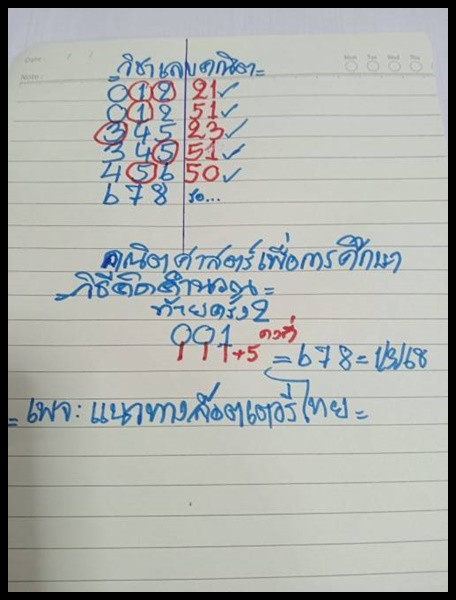 Date: / /
Mon Tue Wed Thu Fri
Note:
วิชาเลขคณิต=
012 21✓
012 51✓
345 23✓
345 51✓
456 50✓
678 รอ...
คณิตศาสตร์เพื่อการศึกษา
วิธีคิดคำนวณ=
ท้ายครั้ง2
001 คงที่
+5 =678=
=เพจ:แนวทางล๊อตเตอรี่ไทย=